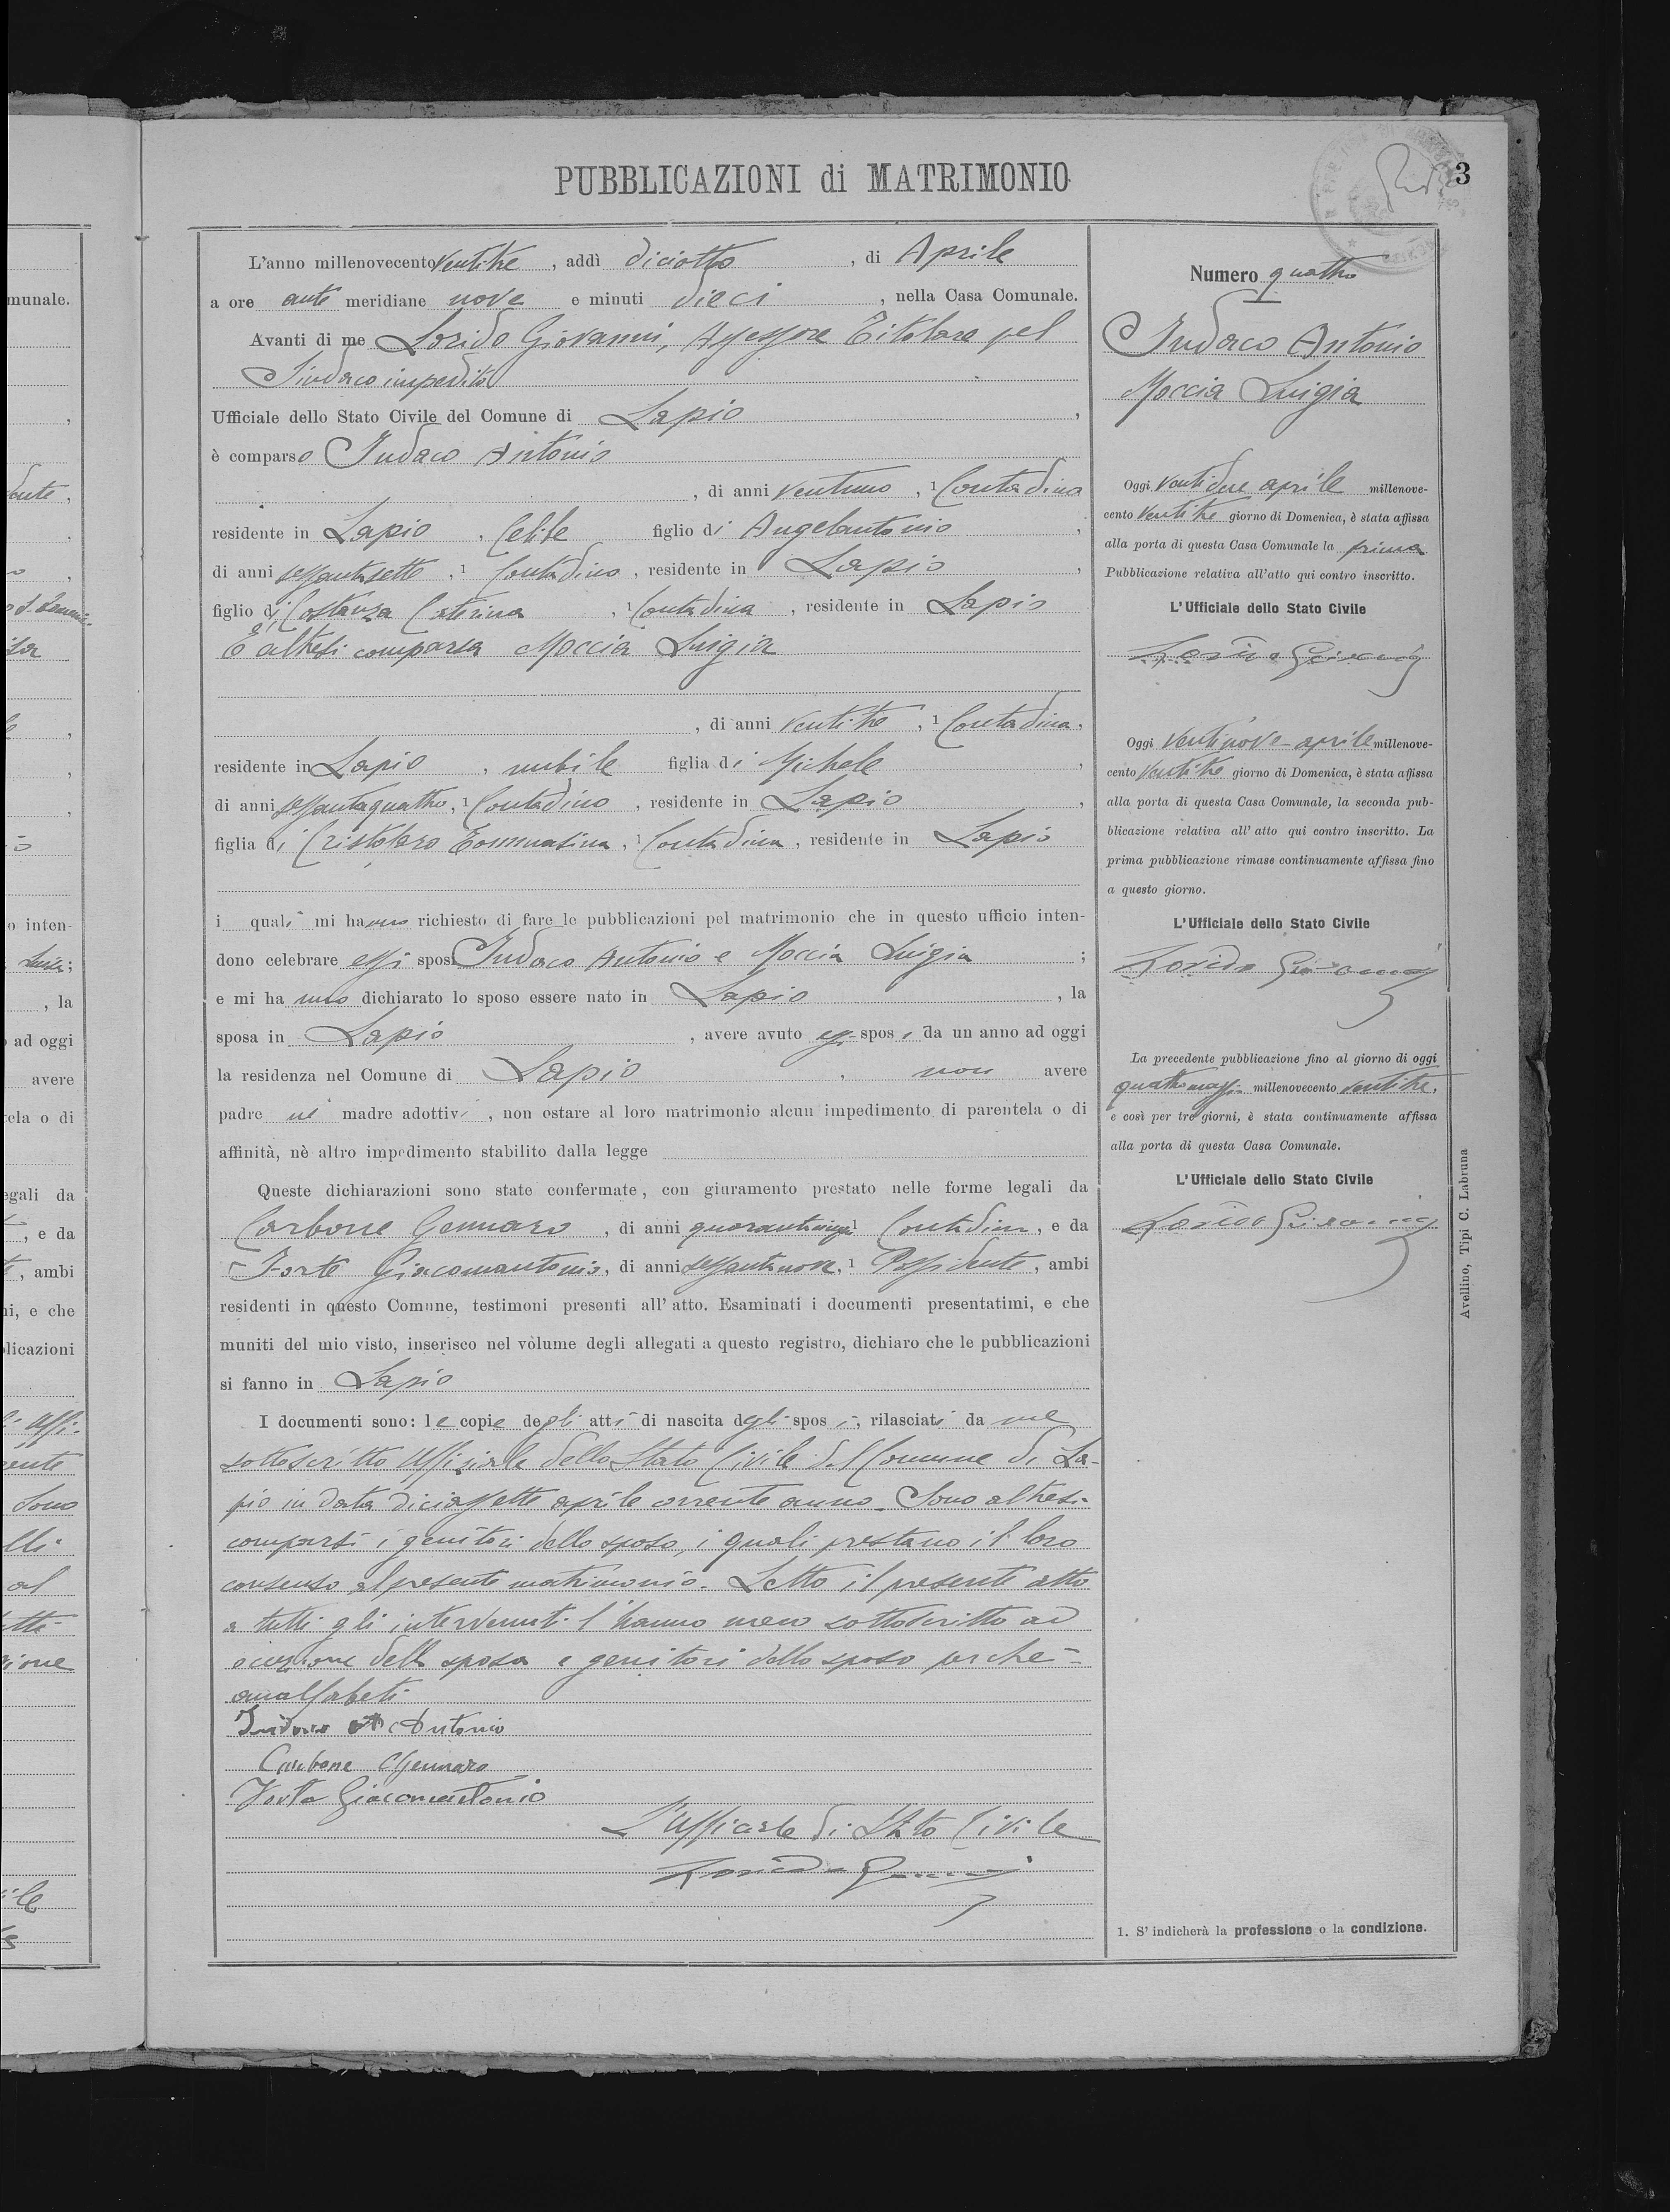 PUBBLICAZIONI di MATRIMONIO
3
L'anno millenovecento ventitre, addì diciotto, di Aprile
a ore anti meridiane nove e minuti dieci, nella Casa Comunale.
Avanti di me Lorido Giovanni, Assessore Titolare pel
Sindaco impedito
Ufficiale dello Stato Civile del Comune di Lapio,
è comparso Iudaco Antonio
, di anni ventuno, 1 Contadino
residente in Lapio, Celibe figlio di Angelantonio,
di anni sessantasette, 1 Contadino, residente in Lapio,
figlio di Costanza Caterina, 1 Contadina, residente in Lapio
È altresì comparsa Moccia Luigia
, di anni ventitre, 1 Contadina,
residente in Lapio, nubile figlia di Michele,
di anni sessantaquattro, 1 Contadino, residente in Lapio,
figlia di Cristofaro Tommasina, 1 Contadina, residente in Lapio
i quali mi hanno richiesto di fare le pubblicazioni pel matrimonio che in questo ufficio inten-
dono celebrare essi sposi Iudaco Antonio e Moccia Luigia;
e mi hanno dichiarato lo sposo essere nato in Lapio, la
sposa in Lapio, avere avuto essi sposi da un anno ad oggi
la residenza nel Comune di Lapio, non avere
padre nè madre adottivi, non ostare al loro matrimonio alcun impedimento di parentela o di
affinità, nè altro impedimento stabilito dalla legge
Queste dichiarazioni sono state confermate, con giuramento prestato nelle forme legali da
Carbone Gennaro, di anni 1 Contadino, e da
Forte Giacomantonio, di anni sessantanove, 1 Possidente, ambi
residenti in questo Comune, testimoni presenti all'atto. Esaminati i documenti presentatimi, e che
muniti del mio visto, inserisco nel volume degli allegati a questo registro, dichiaro che le pubblicazioni
si fanno in Lapio
I documenti sono: le copie degli atti di nascita degli sposi, rilasciati da me
sottoscritto Uffiziale dello Stato Civile del Comune di La-
pio in data diciassette aprile corrente anno. Sono altresì
comparsi i genitori dello sposo, i quali prestano il loro
consenso al presente matrimonio. Letto il presente atto
a tutti gli intervenuti l'hanno meco sottoscritto ad
eccezione della sposa e genitori dello sposo perchè
analfabeti
Iudaco Antonio
Carbone Gennaro
Forte Giacomantonio
L'Ufficiale di Stato Civile
Lorido Giovanni
Numero quattro
Iudaco Antonio
Moccia Luigia
Oggi ventidue aprile millenove-
cento ventitre giorno di Domenica, è stata affissa
alla porta di questa Casa Comunale la prima
Pubblicazione relativa all'atto qui contro inscritto.
L'Ufficiale dello Stato Civile
Lorido Giovanni
Oggi ventinove aprile millenove-
cento ventitre giorno di Domenica, è stata affissa
alla porta di questa Casa Comunale, la seconda pub-
blicazione relativa all'atto qui contro inscritto. La
prima pubblicazione rimase continuamente affissa fino
a questo giorno.
L'Ufficiale dello Stato Civile
Lorido Giovanni
La precedente pubblicazione fino al giorno di oggi
quattro maggio millenovecento ventitre,
e così per tre giorni, è stata continuamente affissa
alla porta di questa Casa Comunale.
L'Ufficiale dello Stato Civile
Lorido Giovanni
1. S'indicherà la professione o la condizione.
Avellino, Tipi C. Labruna